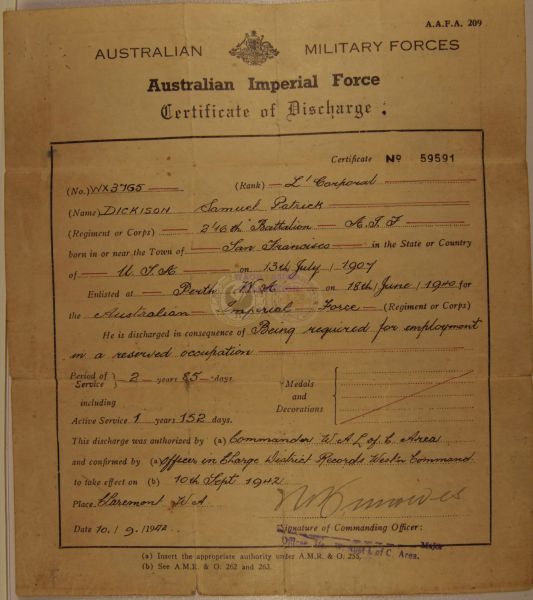 A.A.F.A. 209
AUSTRALIAN MILITARY FORCES
Australian Imperial Force
Certificate of Discharge
Certificate No 59591
(No.) WX3765 (Rank) L' Corporal
(Name) DICKISON Samuel Patrick
(Regiment or Corps) 2/16th Battalion A.I.F
born in or near the Town of San Francisco in the State or Country
of U.S.A. on 13th July 1907
Enlisted at Perth W.A on 18th June 1940 for
the Australian Imperial Force (Regiment or Corps)
He is discharged in consequence of Being required for employment
in a reserved occupation
Period of Service 2 years 85 days. Medals and Decorations
including
Active Service 1 years 152 days.
This discharge was authorized by (a) Commander W.A.L. of C. Area
and confirmed by (a) Officer in Charge District Records Westn Command
to take effect on (b) 10th Sept 1942
Place Claremont W A
Date 10/9/1942
Signature of Commanding Officer:
Major
L of C. Area.
(a) Insert the appropriate authority under A.M.R. & O. 255.
(b) See A.M.R. & O. 262 and 263.